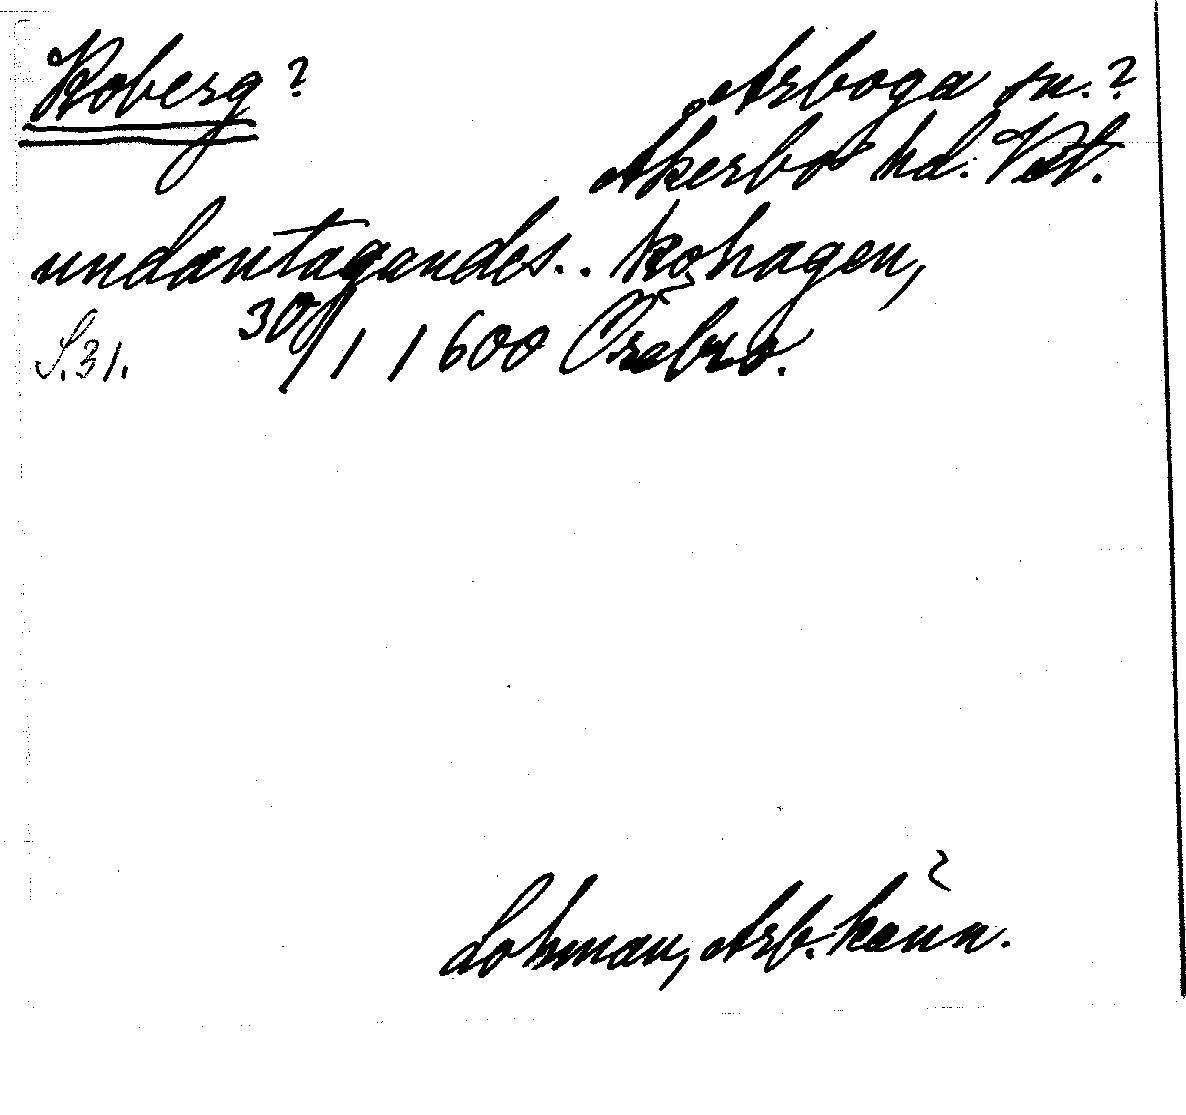 Koberg? Arboga sn.?
Åkerbo hd. Vstl.
undantagandes.. kohagen,
S.31. 30/1 1600 Örebro.
Lohman, Arb. känn.